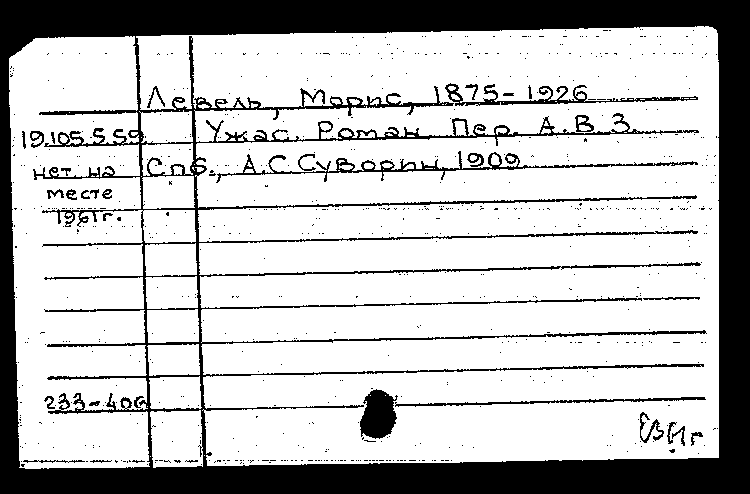 Левель, Морис, 1875-1926
19.105.5.59. Ужас. Роман. Пер. А.В.З.
нет на Спб., А.С.Суворин, 1909.
месте
1961г.
233-406